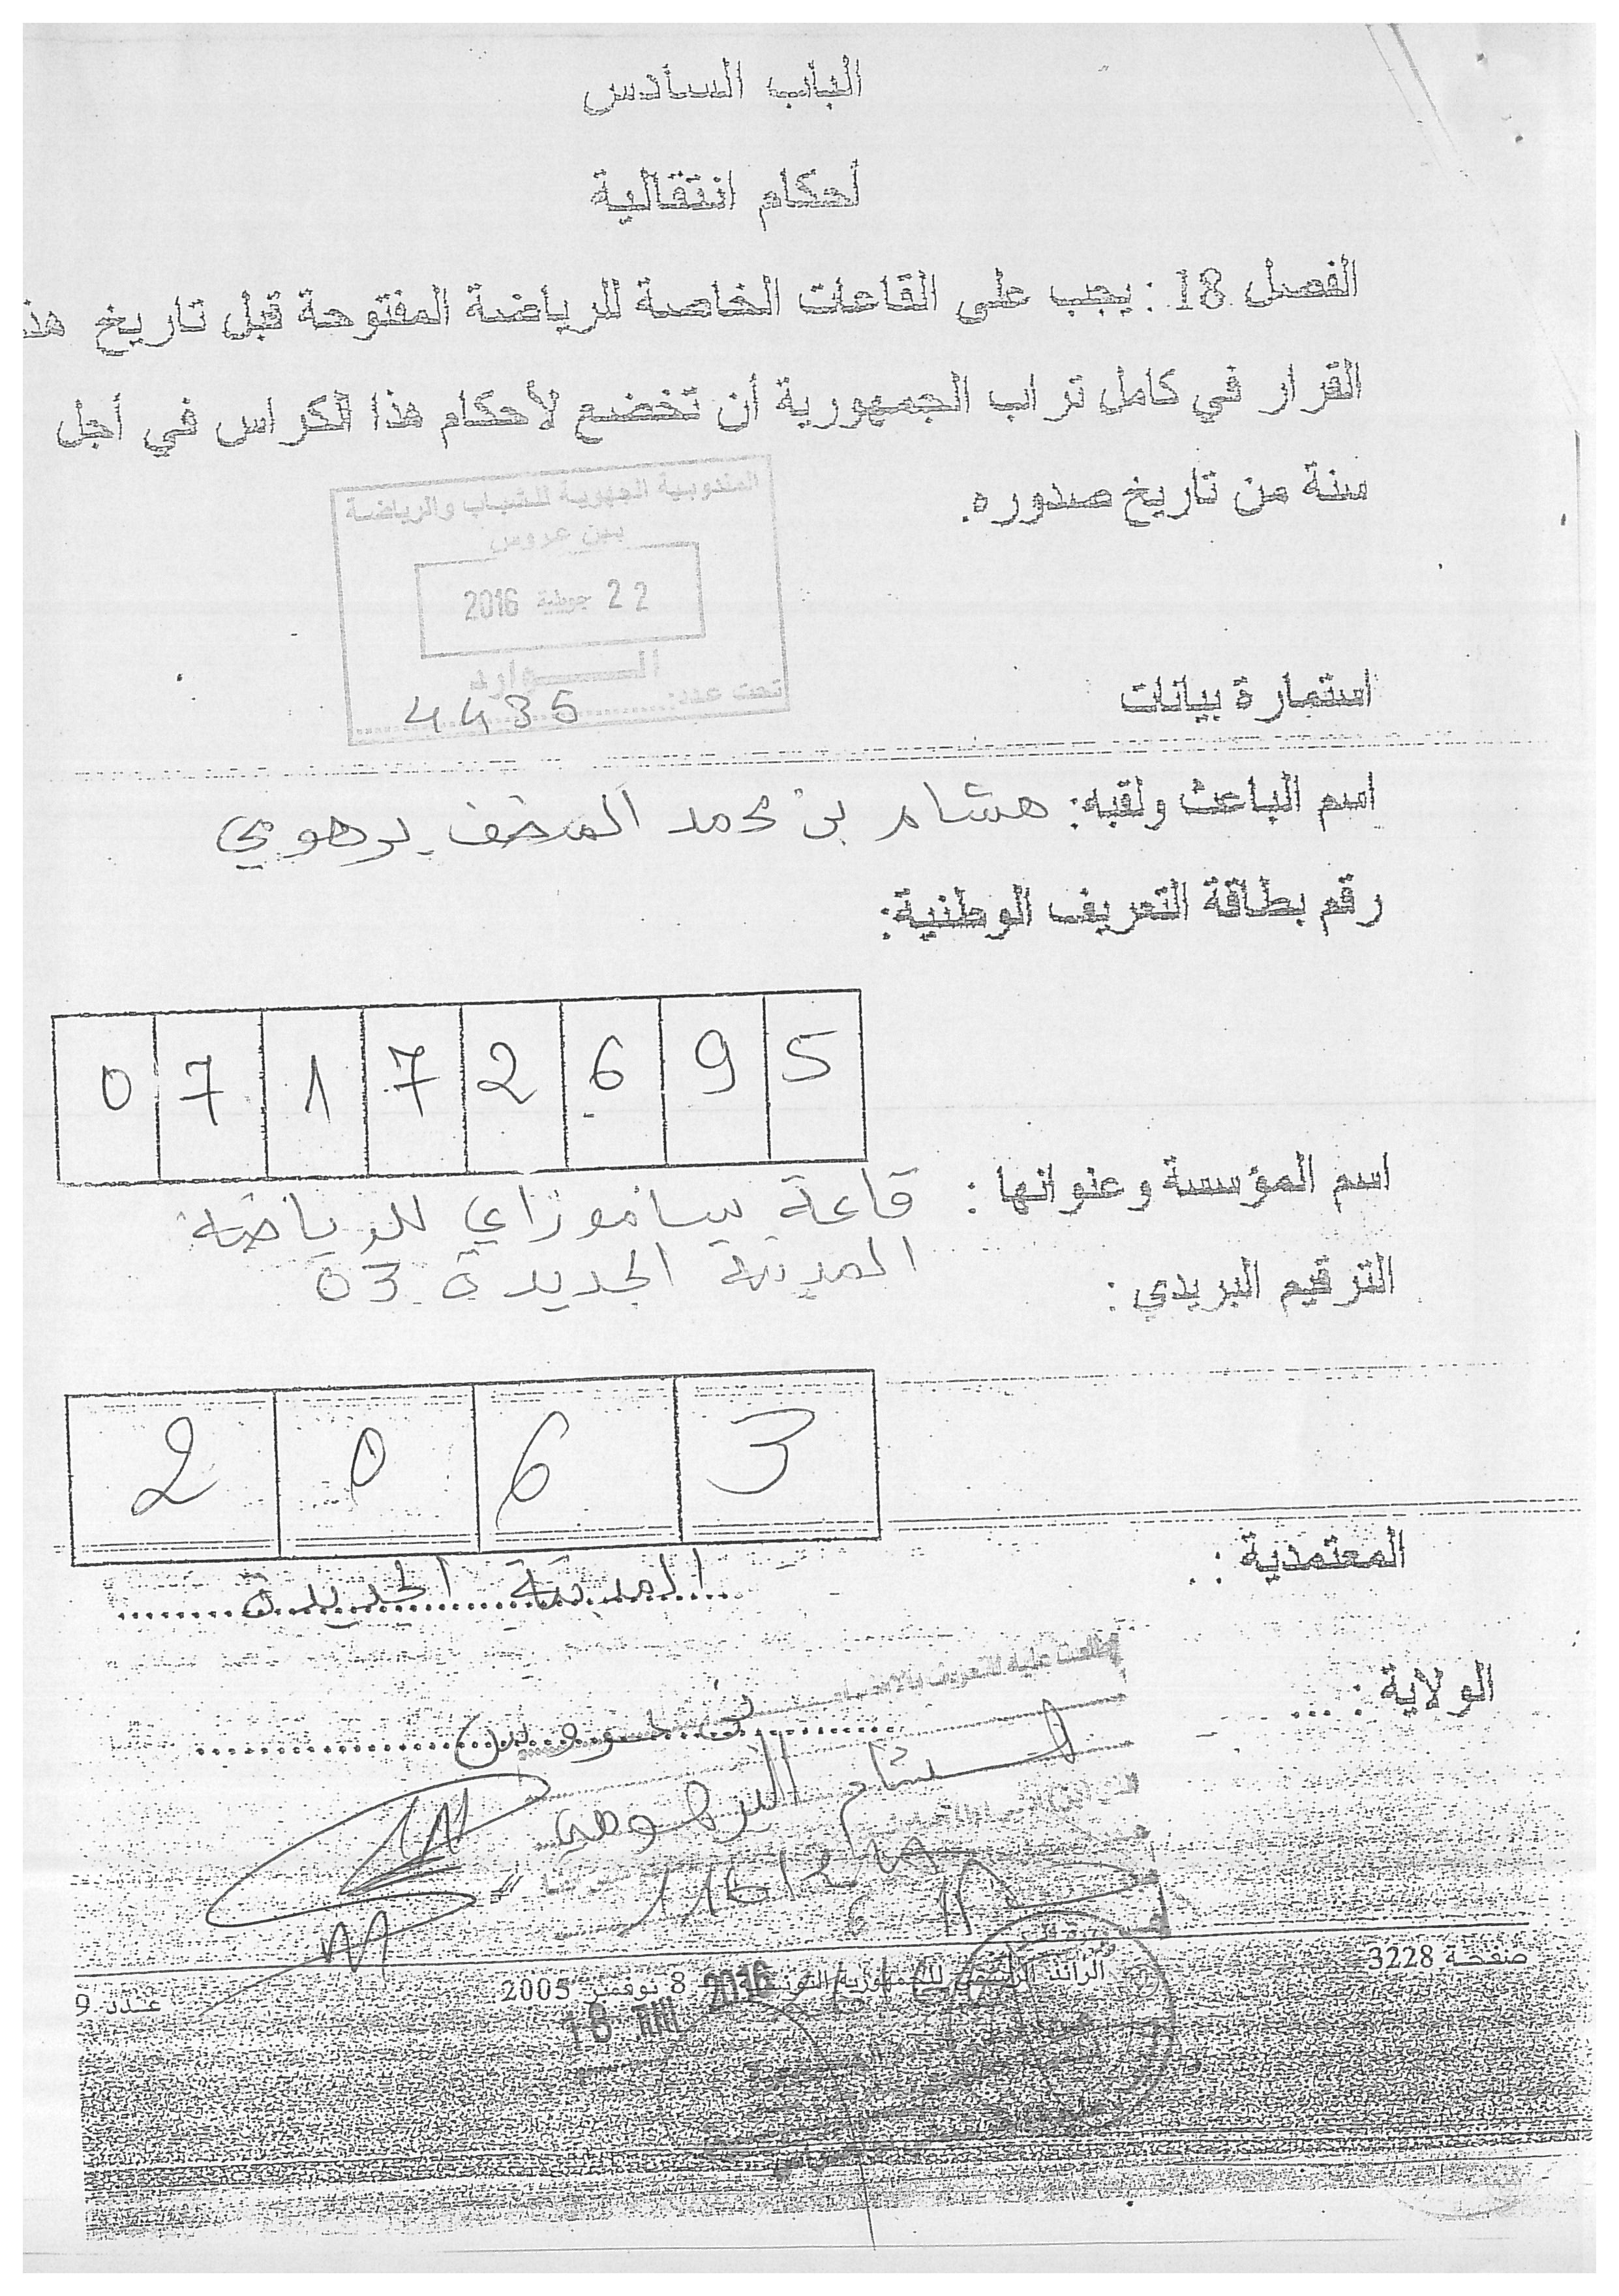 الباب السادس
أحكام انتقالية
الفصل 18 : يجب على القاعات الخاصة للرياضة المفتوحة قبل تاريخ هذ
القرار في كامل تراب الجمهورية أن تخضع لأحكام هذا الكراس في أجل
سنة من تاريخ صدوره.
المندوبية الجهوية للشباب والرياضة
ببن عروس
22 جويلية 2016
الـــوارد
تحت عدد: 4435
استمارة بيانات
اسم الباعث ولقبه: هشام بن محمد برهومي
رقم بطاقة التعريف الوطنية:
0 7 1 7 2 6 9 5
اسم المؤسسة وعنوانها : قاعة للرياضة
المدينة الجديدة 03
الترقيم البريدي :
2 0 6 3
المعتمدية : المدينة الجديدة
الولاية : بن عروس
هشام البرهومي
صفحة 3228
الرائد الرسمي للجمهورية التونسية 8 نوفمبر 2005
عدد 9
2016